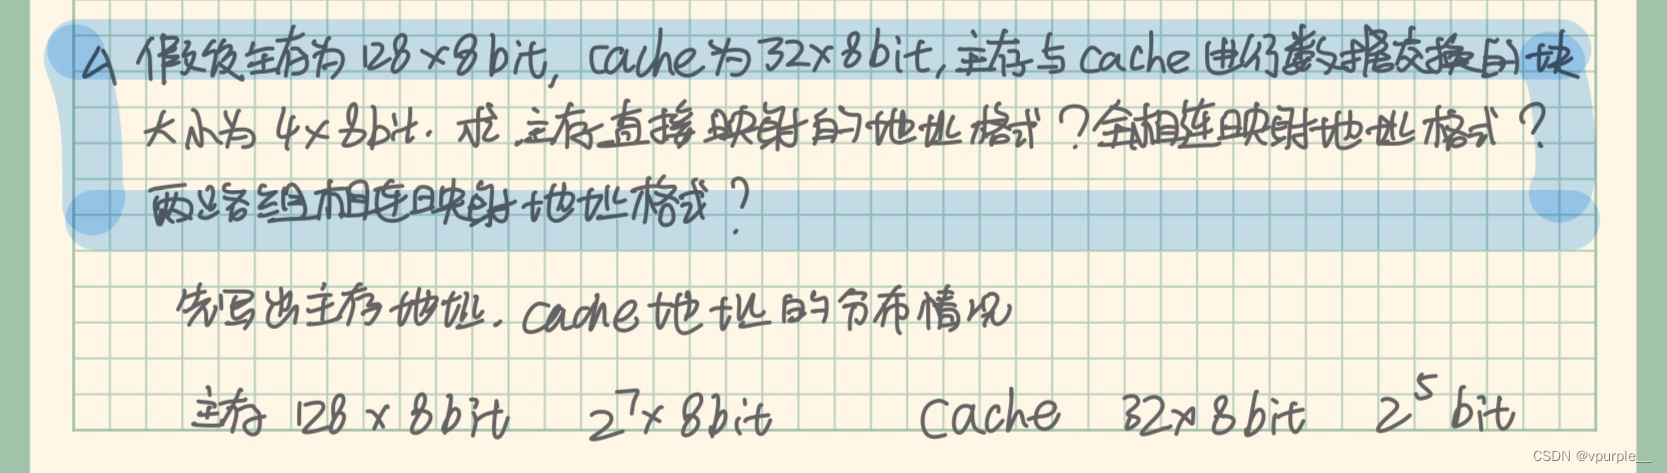 △ 假设主存为 128×8bit, cache为32×8bit,主存与cache进行数据交换的块
大小为 4×8bit. 求主存直接映射的地址格式？全相连映射地址格式？
两路组相连映射地址格式？
先写出主存地址. cache地址的分布情况
主存 128 × 8bit 2⁷×8bit Cache 32×8bit 2⁵ bit
CSDN @vpurple__